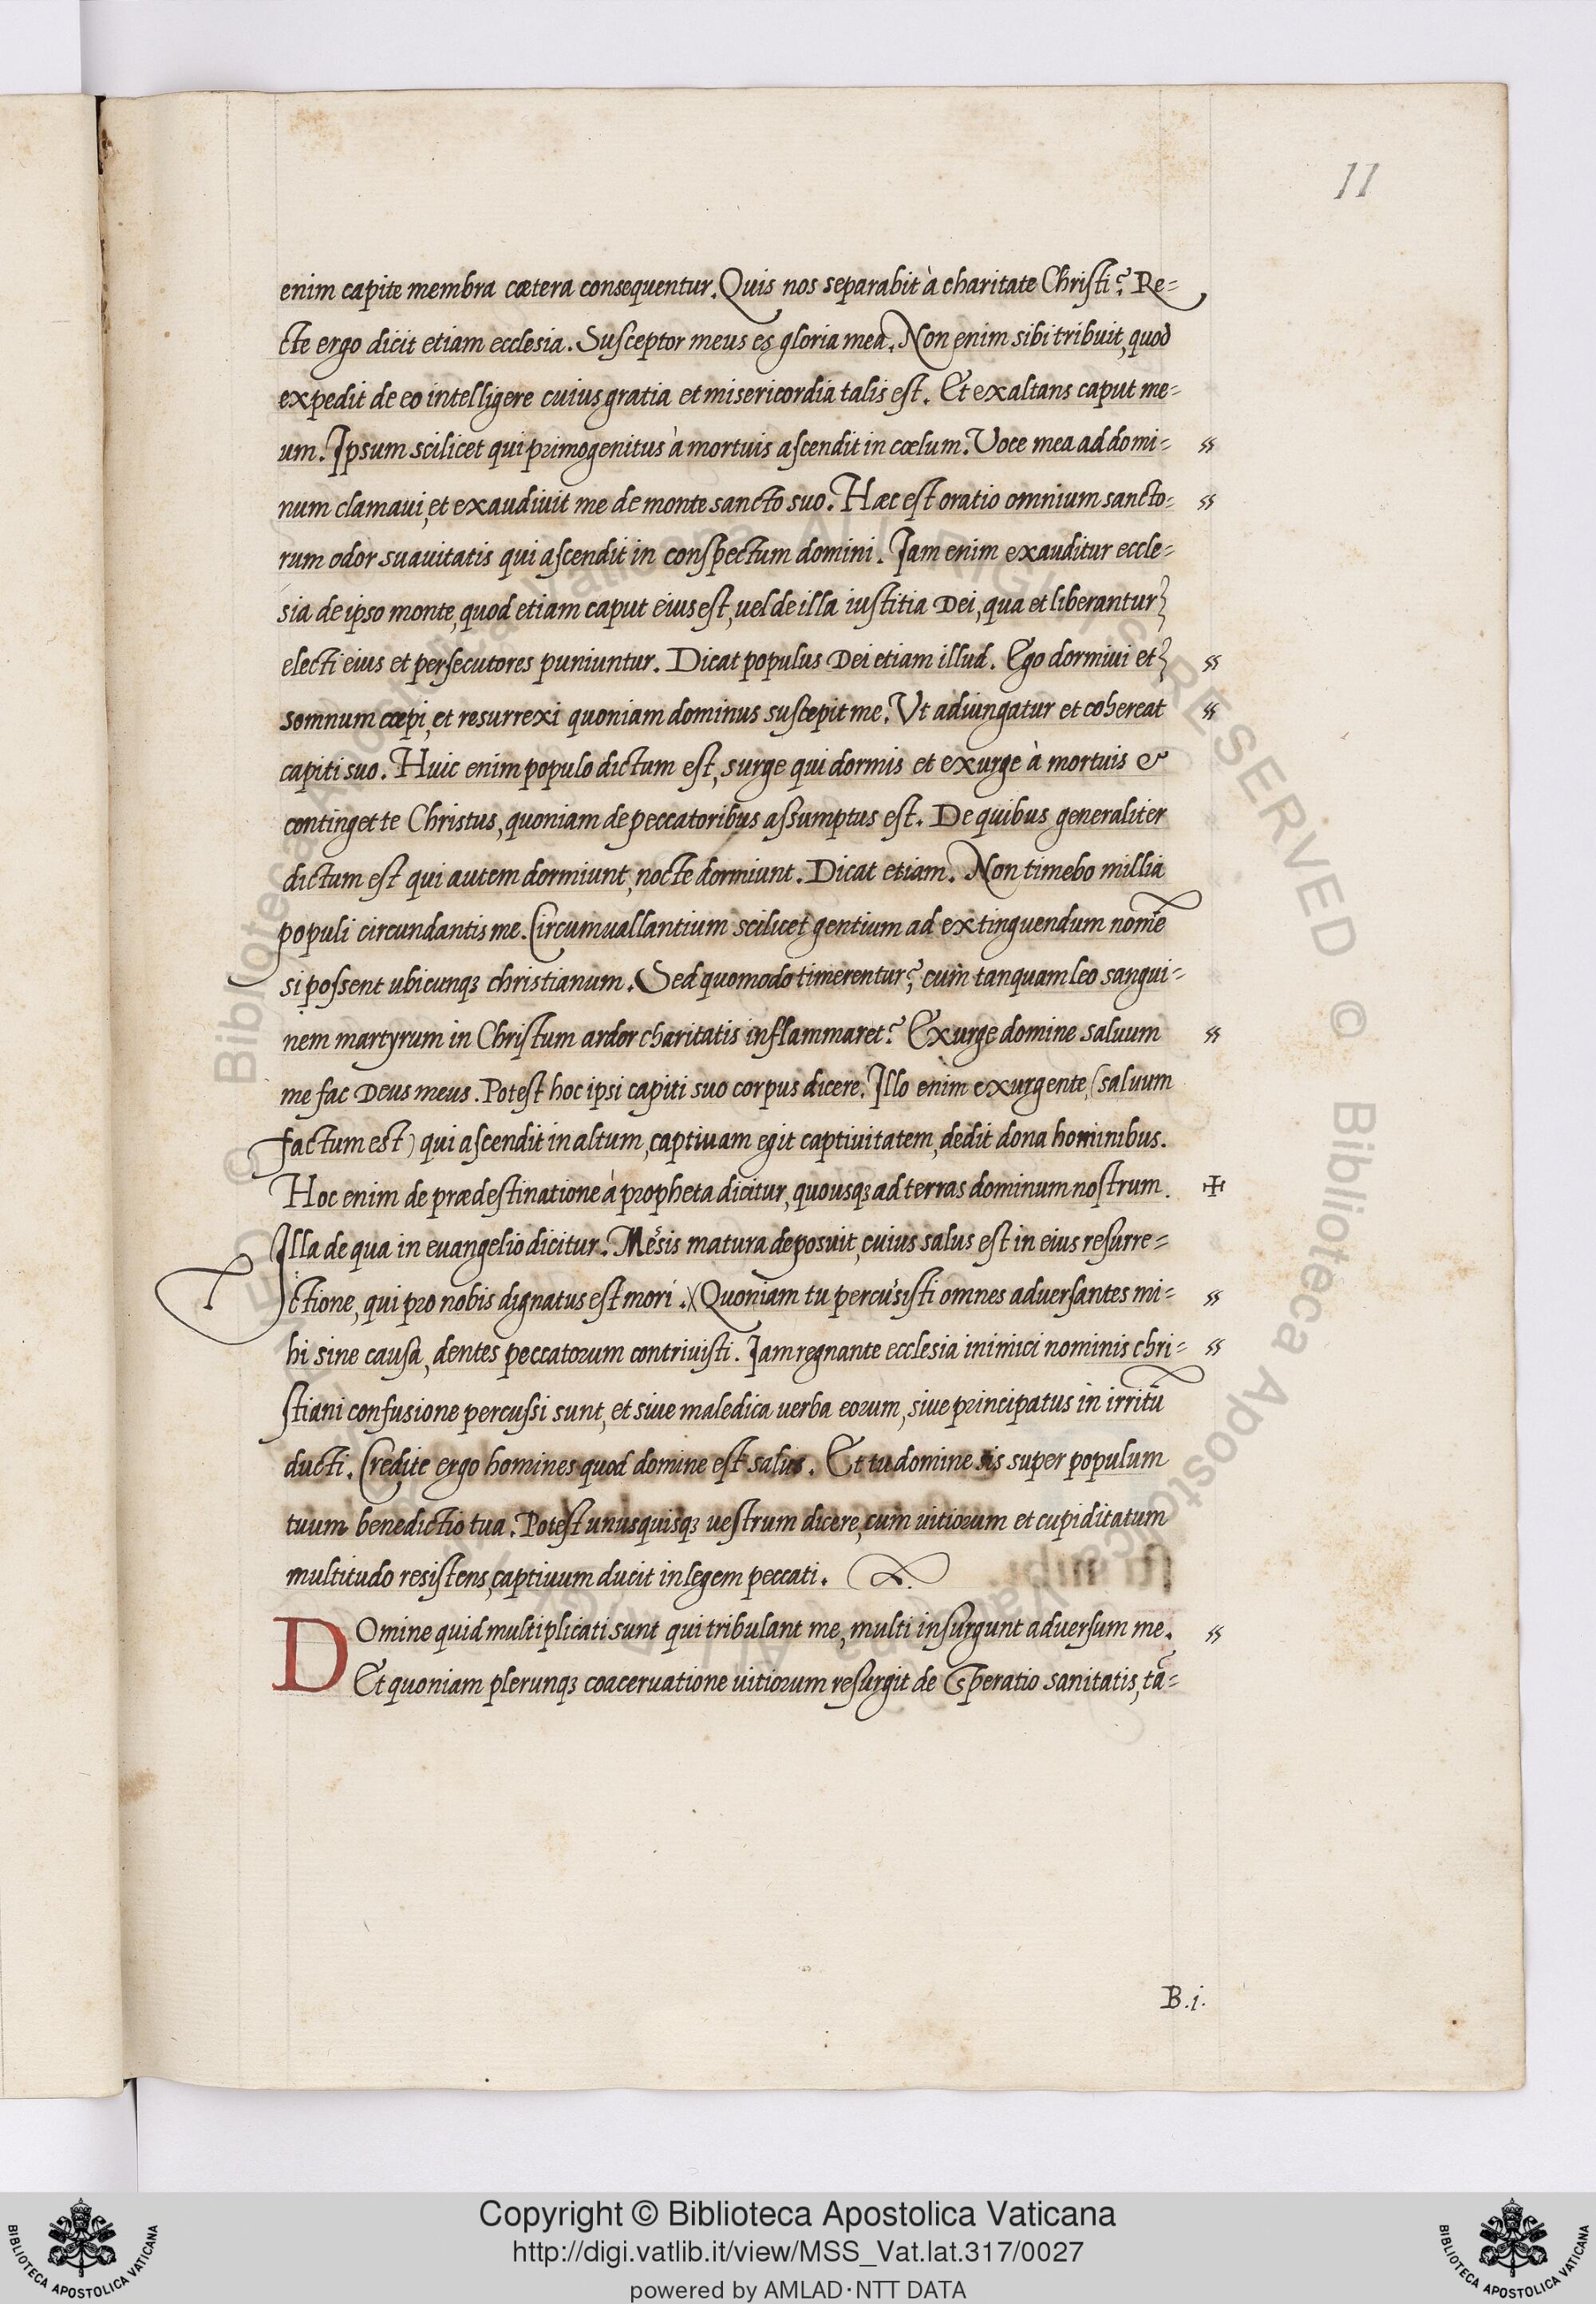 11
enim capite membra cætera consequentur. Quis nos separabit à charitate Christi? Re=
cte ergo dicit etiam ecclesia. Susceptor meus es gloria mea. Non enim sibi tribuit, quod
expedit de eo intelligere cuius gratia et misericordia talis est. Et exaltans caput me=
um. Ipsum scilicet qui primogenitus à mortuis ascendit in cœlum. Voce mea ad domi=
num clamaui, et exaudiuit me de monte sancto suo. Hæc est oratio omnium sancto=
rum odor suauitatis qui ascendit in conspectum domini. Iam enim exauditur eccle=
sia de ipso monte, quod etiam caput eius est, uel de illa iustitia Dei, qua et liberantur
electi eius et persecutores puniuntur. Dicat populus Dei etiam illud. Ego dormiui et
somnum cœpi, et resurrexi quoniam dominus suscepit me. Vt adiungatur et cohereat
capiti suo. Huic enim populo dictum est, surge qui dormis et exurge à mortuis &
continget te Christus, quoniam de peccatoribus assumptus est. De quibus generaliter
dictum est qui autem dormiunt, nocte dormiunt. Dicat etiam. Non timebo millia
populi circundantis me. Circumuallantium scilicet gentium ad extinguendum nomē
si possent ubicunqꝫ christianum. Sed quomodo timerentur? cum tanquam leo sangui=
nem martyrum in Christum ardor charitatis inflammaret? Exurge domine saluum
me fac Deus meus. Potest hoc ipsi capiti suo corpus dicere. Illo enim exurgente, (saluum
factum est) qui ascendit in altum, captiuam egit captiuitatem, dedit dona hominibus.
Hoc enim de prædestinatione à propheta dicitur, quousqꝫ ad terras dominum nostrum.
Illa de qua in euangelio dicitur. Mēsis matura deposuit, cuius salus est in eius resurre=
ctione, qui pro nobis dignatus est mori. Quoniam tu percusisti omnes aduersantes mi=
hi sine causa, dentes peccatorum contriuisti. Iam regnante ecclesia inimici nominis chri=
stiani confusione percussi sunt, et siue maledica uerba eorum, siue principatus in irritū
ducti. Credite ergo homines quod domine est salus. Et tu domine sis super populum
tuum benedictio tua. Potest unusquisqꝫ uestrum dicere, cum uitiorum et cupiditatum
multitudo resistens, captiuum ducit in legem peccati.
DOmine quid multiplicati sunt qui tribulant me, multi insurgunt aduersum me.
Et quoniam plerunqꝫ coaceruatione uitiorum resurgit de speratio sanitatis, tā=
B.i.
© Biblioteca Apostolica Vaticana ALL RIGHTS RESERVED
Copyright © Biblioteca Apostolica Vaticana
http://digi.vatlib.it/view/MSS_Vat.lat.317/0027
powered by AMLAD·NTT DATA
BIBLIOTECA APOSTOLICA VATICANA
BIBLIOTECA APOSTOLICA VATICANA